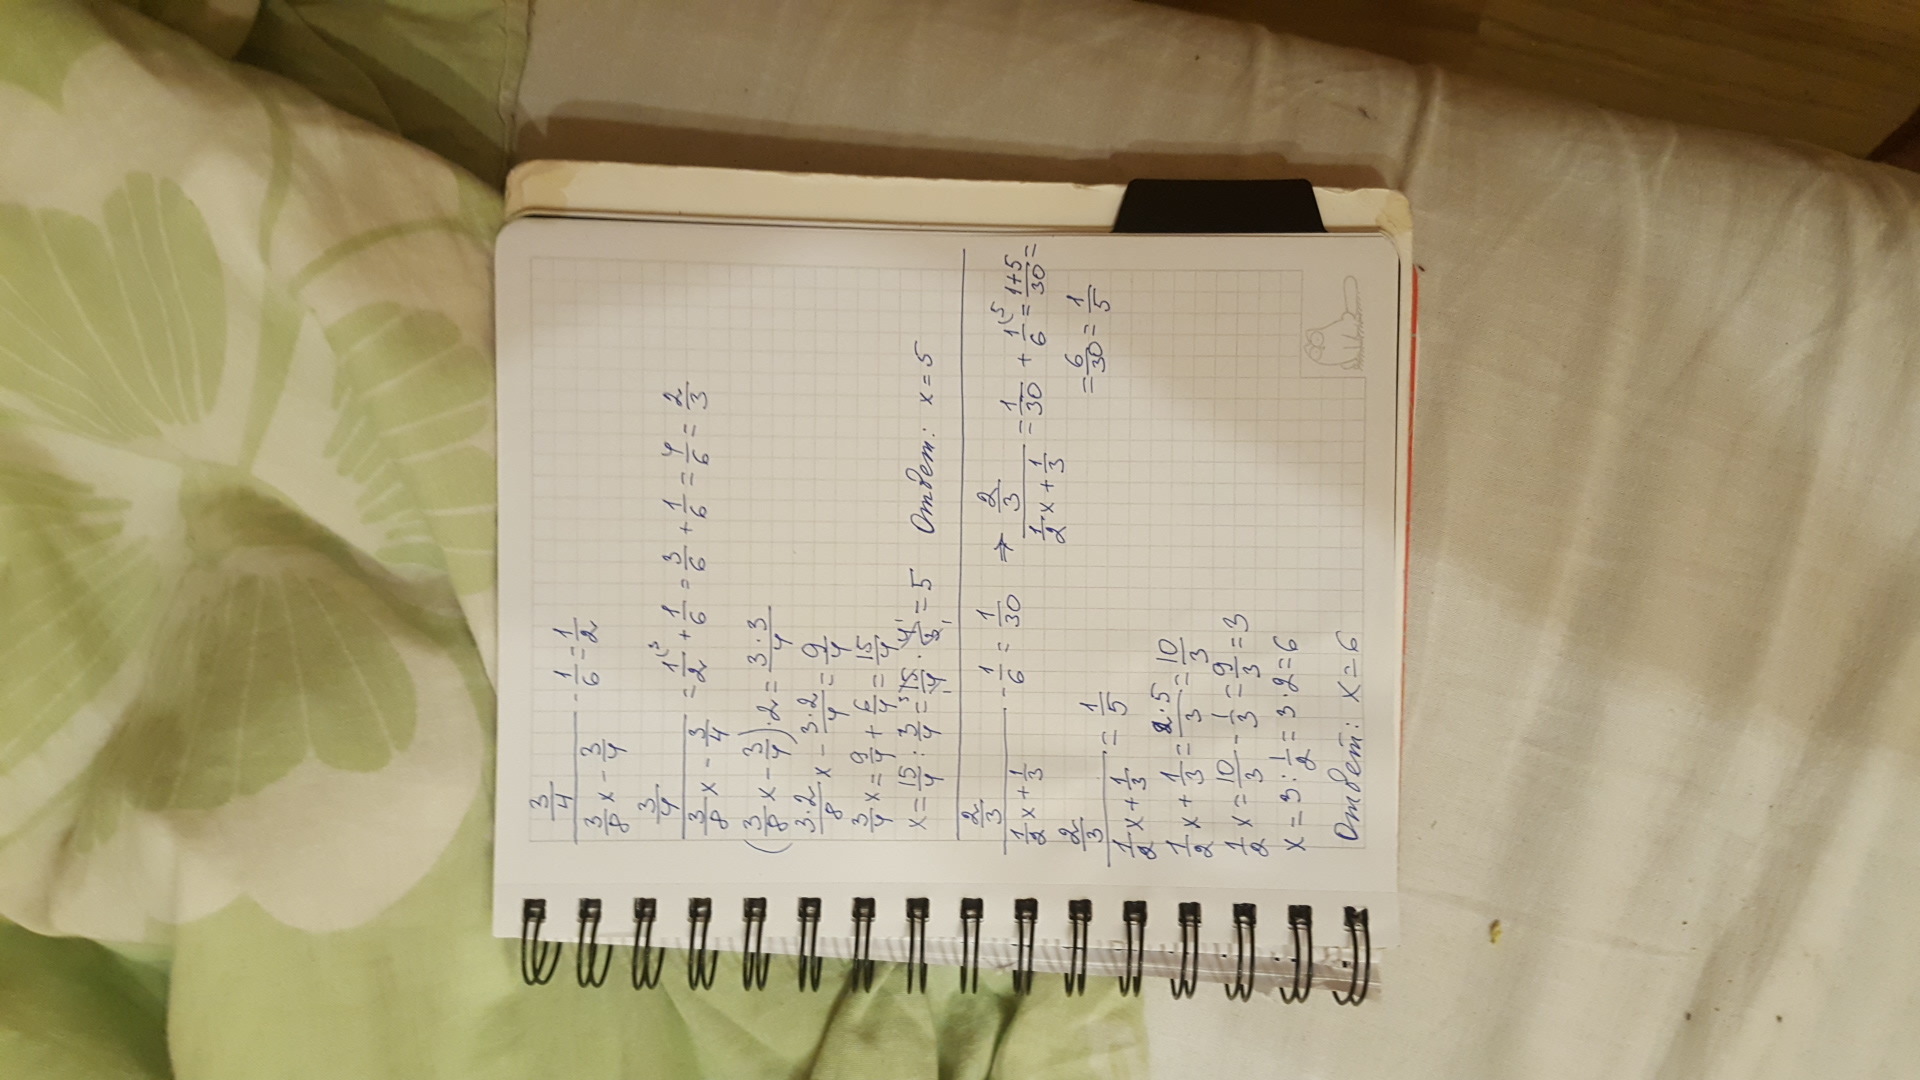 3/4 / (3/8 x - 3/4) - 1/6 = 1/2
3/4 / (3/8 x - 3/4) = 1(3/2 + 1/6 = 3/6 + 1/6 = 4/6 = 2/3
(3/8 x - 3/4) · 2 = 3·3/4
3·2/8 x - 3·2/4 = 9/4
3/4 x = 9/4 + 6/4 = 15/4
x = 15/4 : 3/4 = 15/4 · 4/3 = 5 Ответ: x = 5
2/3 / (1/2 x + 1/3) - 1/6 = 1/30 → 2/3 / (1/2 x + 1/3) = 1/30 + 1(5/6 = 1+5/30 =
= 6/30 = 1/5
2/3 / (1/2 x + 1/3) = 1/5
1/2 x + 1/3 = 2·5/3 = 10/3
1/2 x = 10/3 - 1/3 = 9/3 = 3
x = 3 : 1/2 = 3 · 2 = 6
Ответ: x = 6